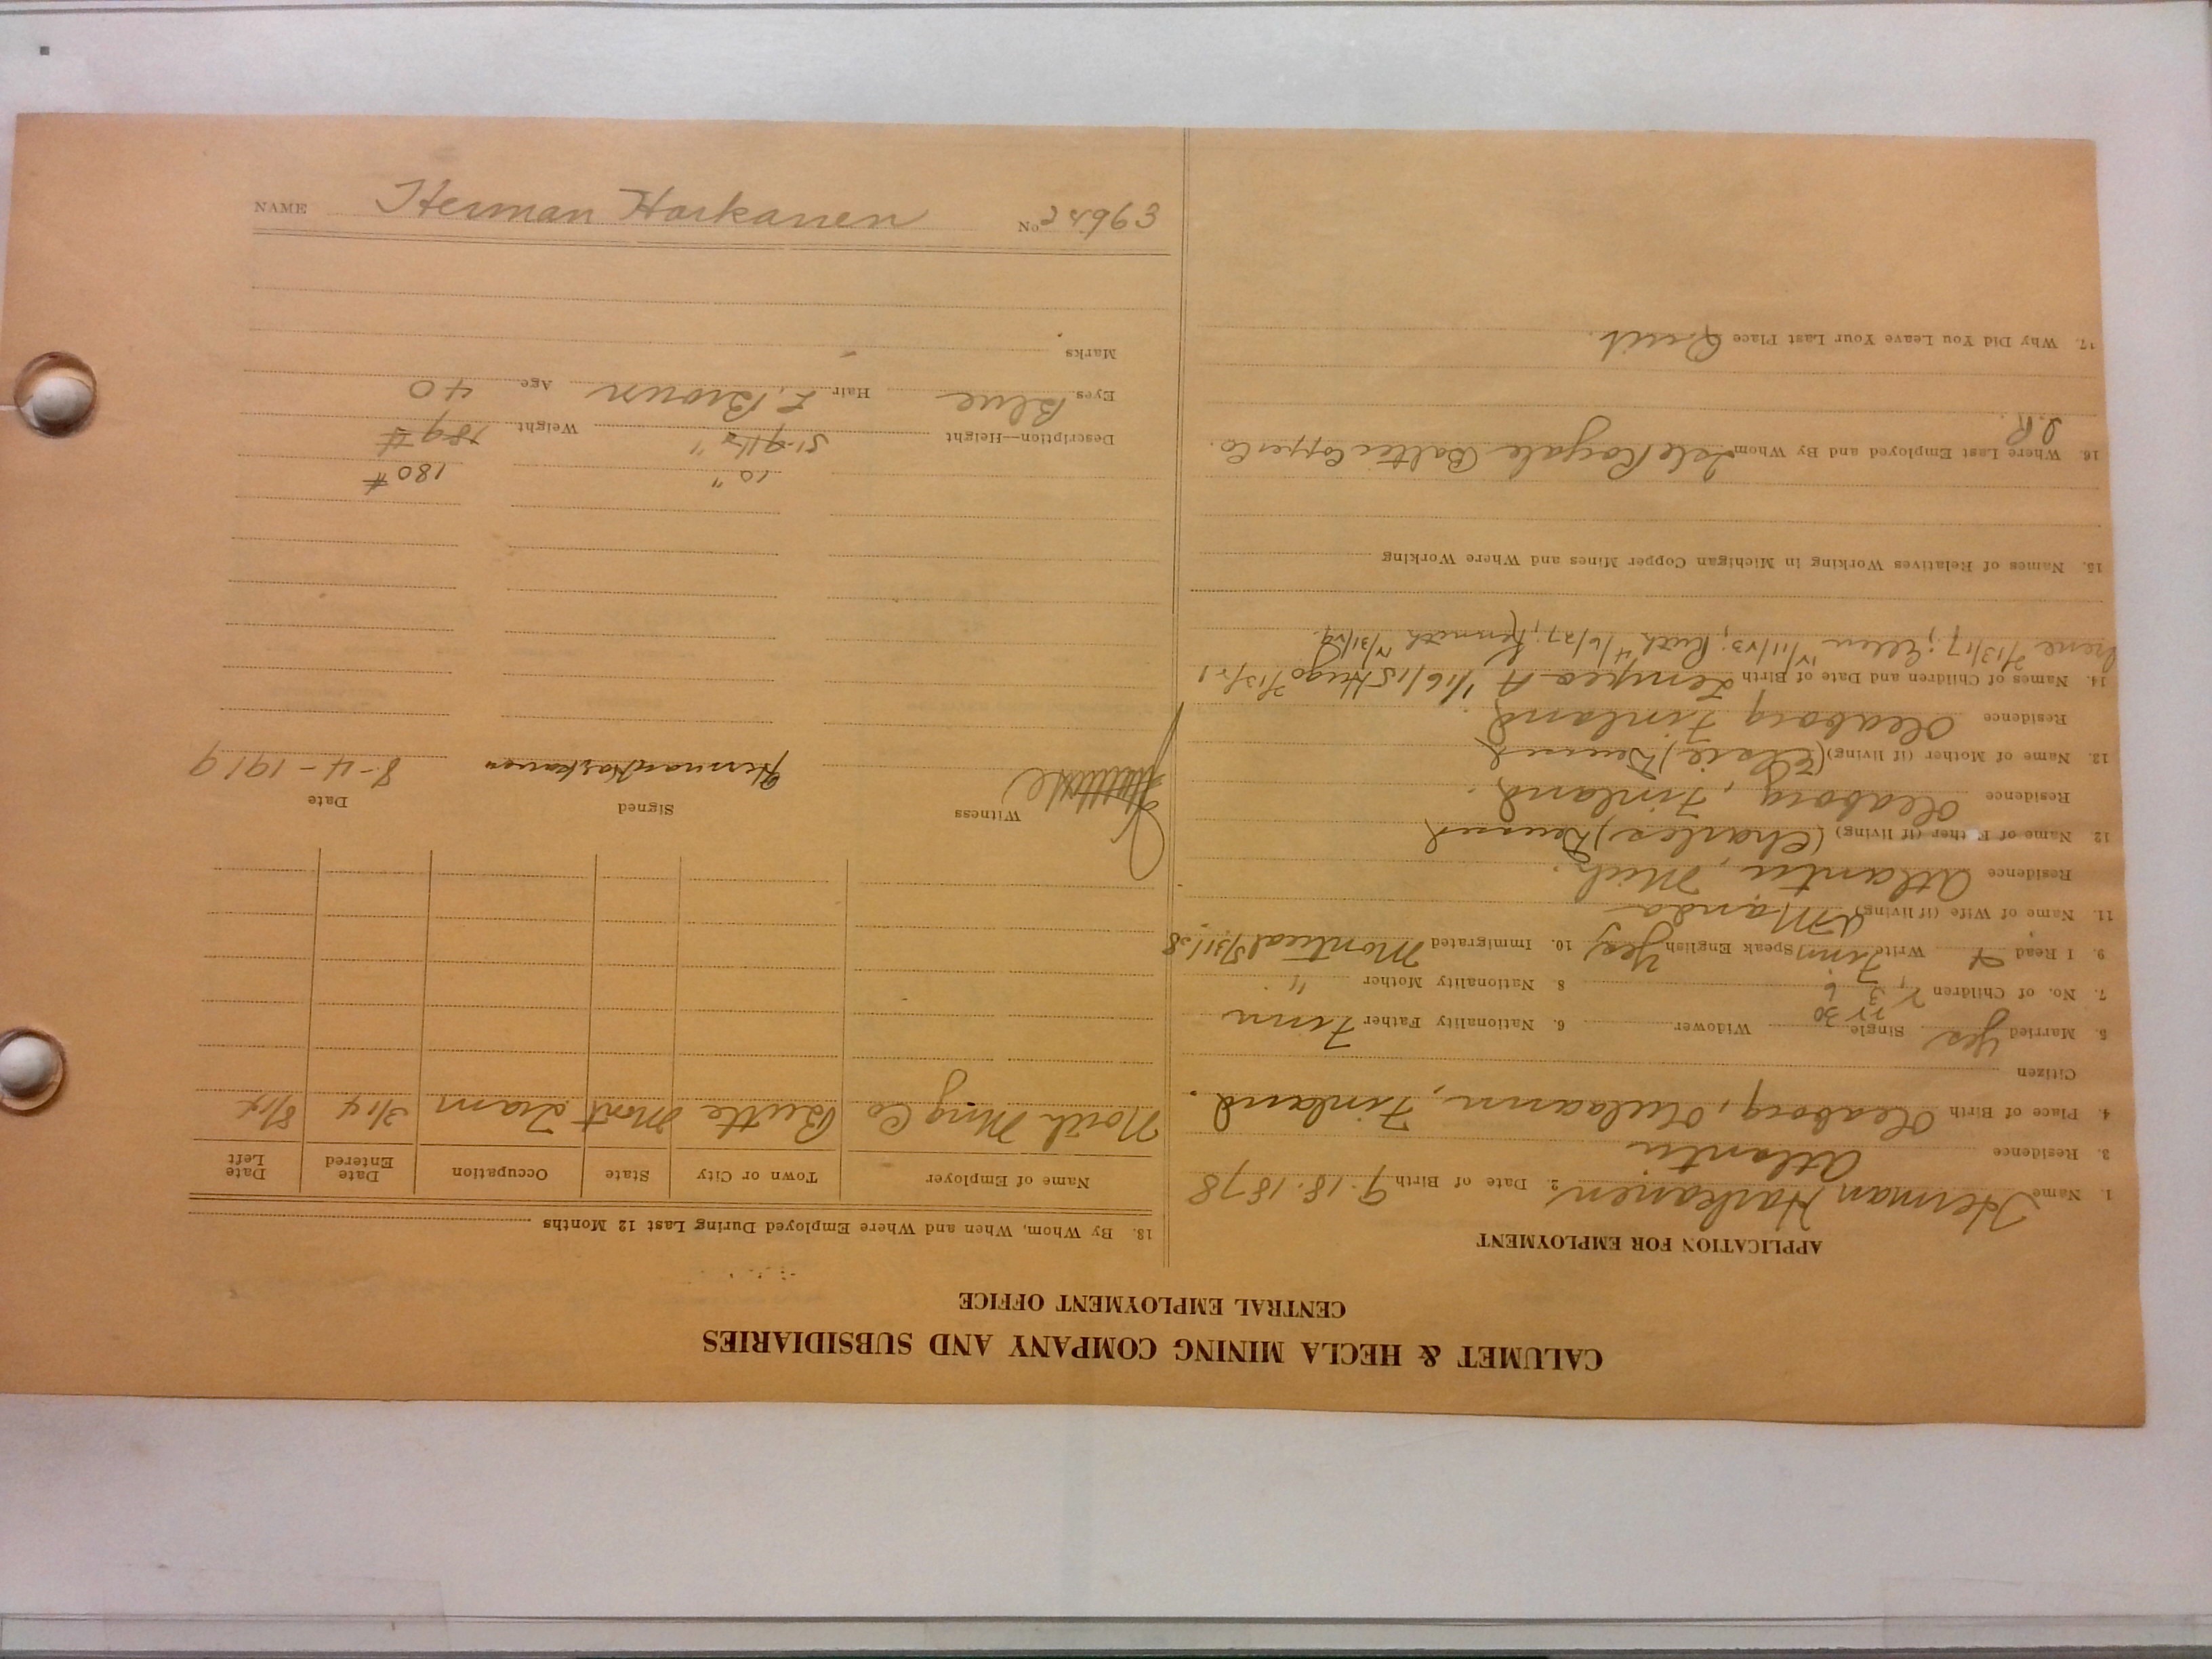 CALUMET & HECLA MINING COMPANY AND SUBSIDIARIES
CENTRAL EMPLOYMENT OFFICE
APPLICATION FOR EMPLOYMENT
1. Name Herman Harkanen 2. Date of Birth 9.18.1878
3. Residence Atlantic
4. Place of Birth Oleaborg, Finland.
Citizen
5. Married Yes Single Widower 6. Nationality Father Finn
7. No. of Children 8. Nationality Mother "
9. I Read Write Finn Speak English Yes 10. Immigrated Montreal
11. Name of Wife (if living) Manda
Residence Atlantic, Mich.
12 Name of Father (if living) (Charles) Deceased
Residence Oleaborg, Finland.
13. Name of Mother (if living) (Elsie) Deceased
Residence Oleaborg Finland.
14. Names of Children and Date of Birth Lempea A 1/16/15 Hugo
Irene 7/13/17; Ellen Ruth 4/6/27; Kenneth
15. Names of Relatives Working in Michigan Copper Mines and Where Working
16. Where Last Employed and By Whom Isle Royale Baltic Copper Co.
I.R.
17. Why Did You Leave Your Last Place Quit.
18. By Whom, When and Where Employed During Last 12 Months
Name of Employer Town or City State Occupation Date Entered Date Left
North Mng Co Butte Mont 3/14 8/14
Witness Signed Date
Herman Harkanen 8-4-1919
10" 180 #
Description—Height 5'-9 1/2" Weight 189 #
Eyes Blue Hair L. Brown Age 40
Marks
NAME Herman Harkanen No